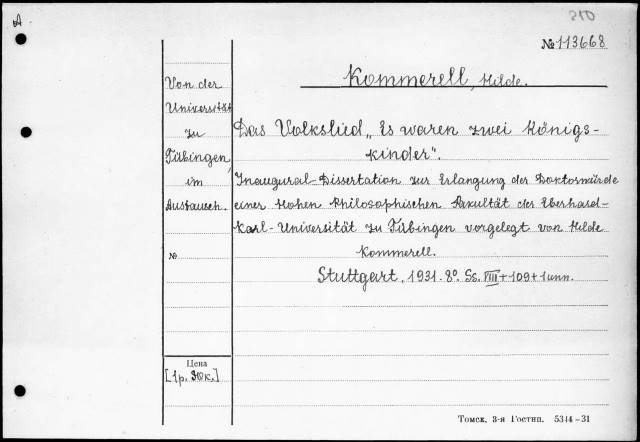 A
310
№ 113668
Kommerell, Hilde.
Von der
Universität
zu
Tübingen,
im
Austausch.
№
Das Volkslied „Es waren zwei Königs-
kinder".
Inaugural-Dissertation zur Erlangung der Doktorwürde
einer Hohen Philosophischen Fakultät der Eberhard-
Karl-Universität zu Tübingen vorgelegt von Hilde
Kommerell.
Stuttgart, 1931. 8º. Ss. VIII+109+1unn.
Цена
[1р. 30к.]
Томск, 3-я Гостип. 5344-31